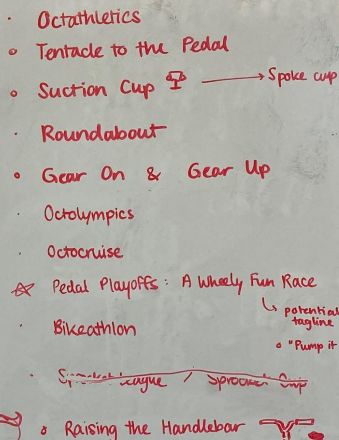 Octathletics
Tentacle to the Pedal
Suction Cup → Spoke cup
Roundabout
Gear On & Gear Up
Octolympics
Octocruise
Pedal Playoffs: A Wheely Fun Race
potential
tagline
Bikeathlon
"Pump it
League / Sprocket Cup
Raising the Handlebar